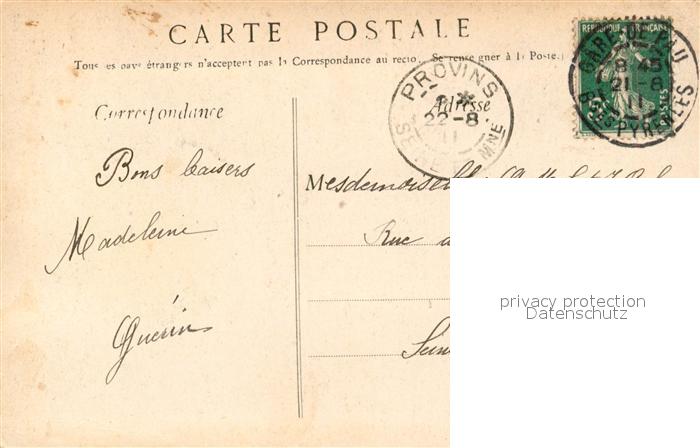 CARTE POSTALE
Tous les pays étrangers n'acceptent pas la Correspondance au recto. Se renseigner à la Poste.
Correspondance
Adresse
REPUBLIQUE FRANÇAISE
POSTES
8 45
21-8
11
PYRÉNÉES
PROVINS
22-8
11
SEINE ET MNE
Bons baisers
Madeleine
Guérin
Mesdemoiselles
Rue
privacy protection
Datenschutz